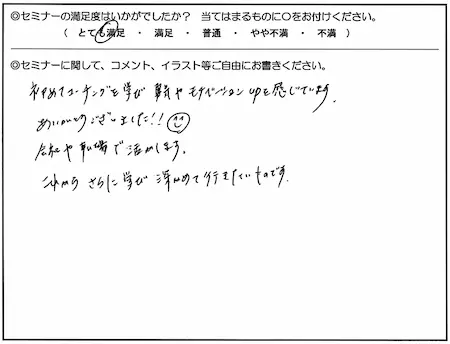 ◎セミナーの満足度はいかがでしたか？ 当てはまるものに○をお付けください。
( とても満足 ・ 満足 ・ 普通 ・ やや不満 ・ 不満 )
◎セミナーに関して、コメント、イラスト等ご自由にお書きください。
初めてコーチングを学び やモチベーションupを感じています。
ありがとうございました!!
会社や現場で活かします。
これから さらに学び 深めて行きたいものです。